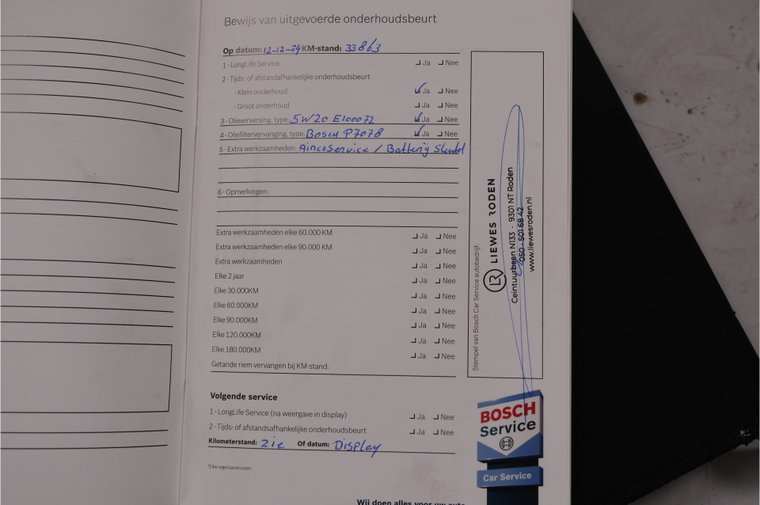 Bewijs van uitgevoerde onderhoudsbeurt
Op datum: 12-12-24 KM-stand: 33863
1 - LongLife Service Ja Nee
2 - Tijds- of afstandsafhankelijke onderhoudsbeurt
- Klein onderhoud Ja Nee
- Groot onderhoud Ja Nee
3 - Olieverversing, type: 5W20 E100072 Ja Nee
4 - Oliefiltervervanging, type: Bosch P7078 Ja Nee
5 - Extra werkzaamheden: Aircoservice / Batterij Sleutel
6 - Opmerkingen:
Extra werkzaamheden elke 60.000 KM Ja Nee
Extra werkzaamheden elke 90.000 KM Ja Nee
Extra werkzaamheden Ja Nee
Elke 2 jaar Ja Nee
Elke 30.000KM Ja Nee
Elke 60.000KM Ja Nee
Elke 90.000KM Ja Nee
Elke 120.000KM Ja Nee
Elke 180.000KM Ja Nee
Getande riem vervangen bij KM-stand:
Volgende service
1 - LongLife Service (na weergave in display) Ja Nee
2 - Tijds- of afstandsafhankelijke onderhoudsbeurt Ja Nee
Kilometerstand: zie Of datum: Display
*Elke regel aankruisen
Wij doen alles voor uw auto
Stempel van Bosch Car Service autobedrijf:
LR LIEWES RODEN
Ceintuurbaan N133 - 9301 NT Roden
050 - 501 68 42
www.liewesroden.nl
BOSCH
Service
Car Service